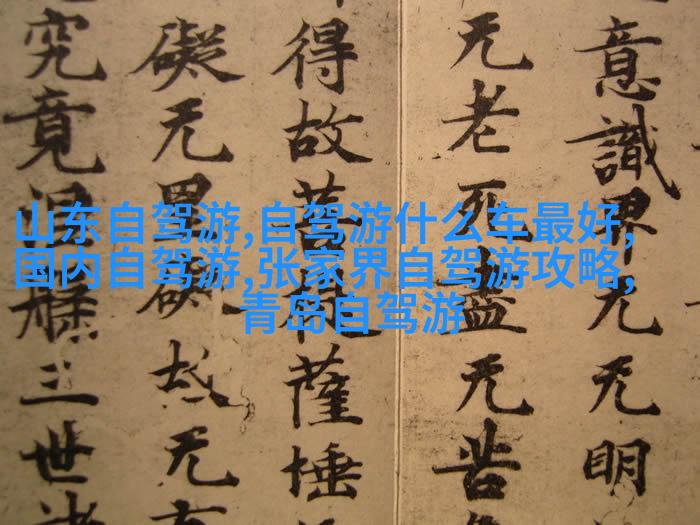 山东自驾游,自驾游什么车最好,
国内自驾游,张家界自驾游攻略,
青岛自驾游
意識界无无明
无老死盡无苦
得故菩提薩埵
礙无罣礙故无有
究竟涅槃三世諸